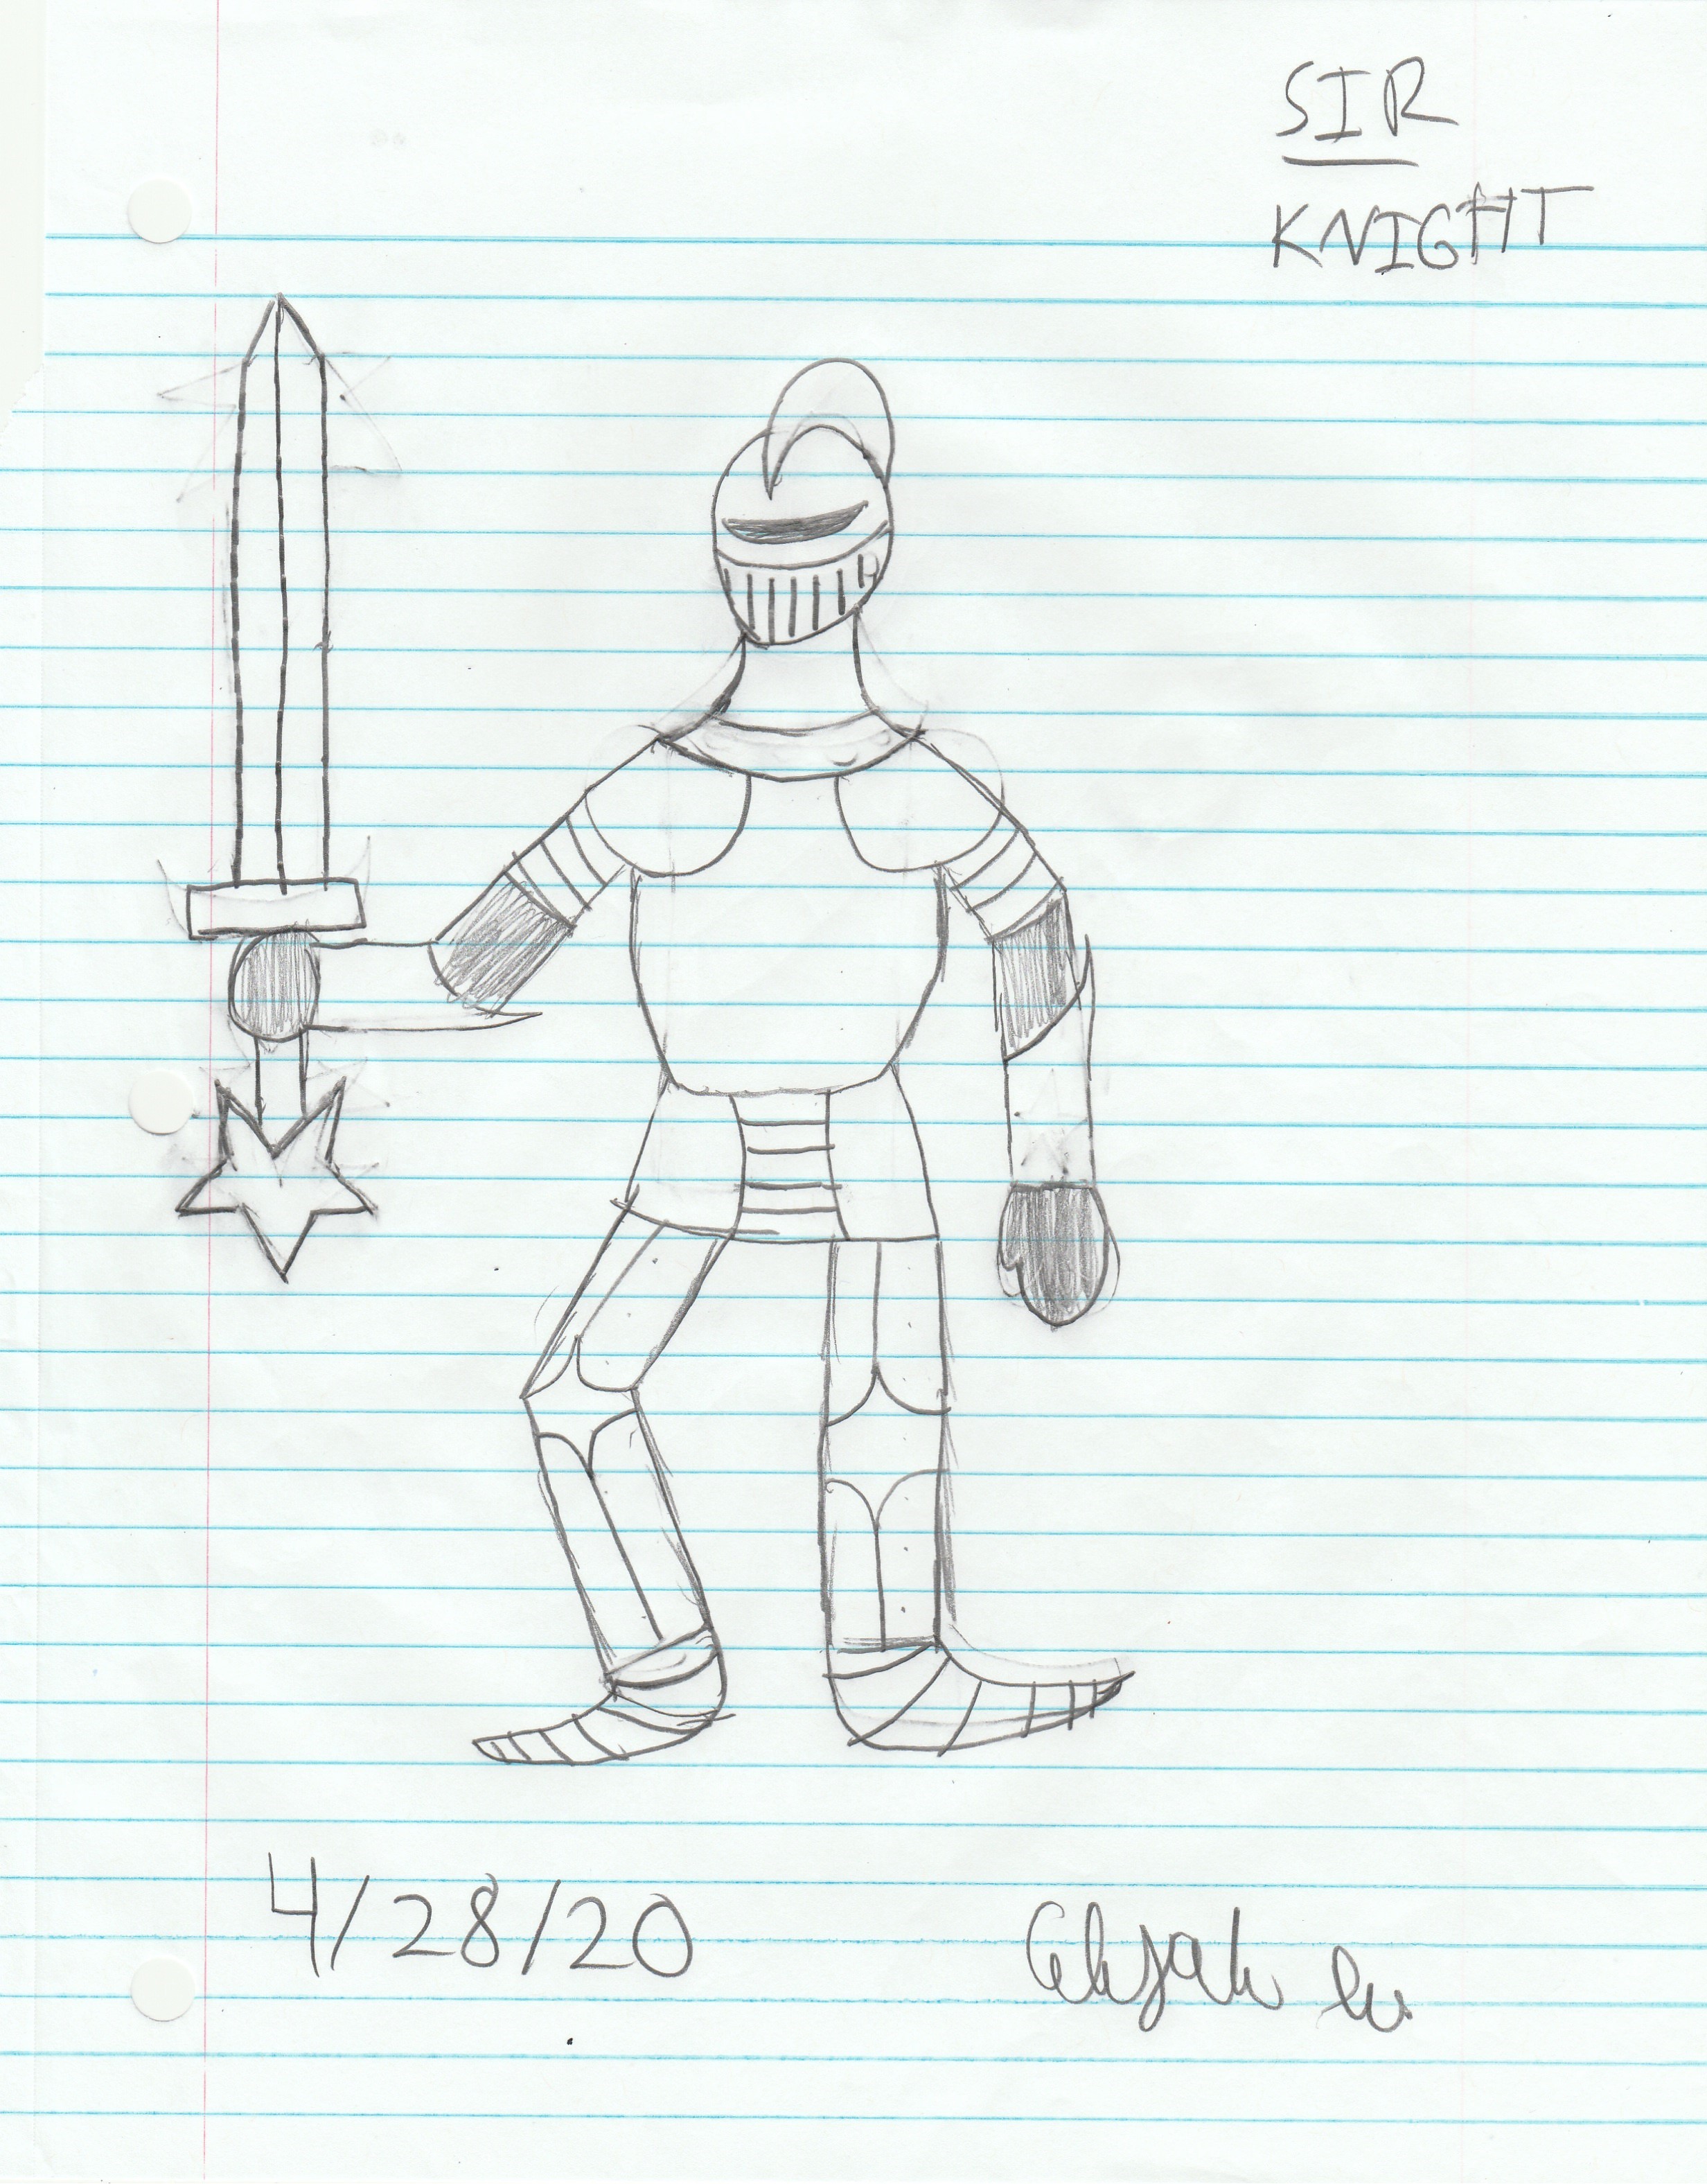 SIR
KNIGHT
4/28/20 Elijah